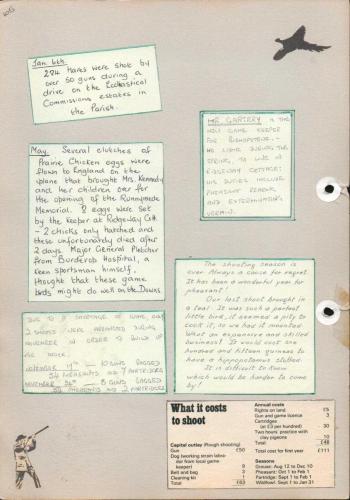 Jan. 6th.
284 Hares were shot by
over 50 guns during a
drive on the Ecclesiastical
Commissions estates in
the Parish.
MR GARTERY is the
new game keeper
for Bishopstone. -
He came during the
Spring, to live at
Ridgeway Cottage:
his duties include
Pheasant rearing
and exterminating
vermin.
May. Several clutches of
Prairie Chicken eggs were
flown to England on the
plane that brought Mrs. Kennedy
and her children over for
the opening of the Runnymede
Memorial. 8 eggs were set
by the Keeper at Ridgeway Cott.
- 2 chicks only hatched and
these unfortunately died after
2 days. Major General Fletcher
from Burderop Hospital, a
keen sportsman himself,
thought that these game
birds might do well on the Downs.
The shooting season is
over. Always a cause for regret.
It has been a wonderful year for
pheasant!
Our last shoot brought in
a teal. It was such a perfect
little bird, it seemed a pity to
cook it, so we had it mounted.
What an expensive and skilled
business! It would cost one
hundred and fifteen guineas to
have a hippopotamus stuffed.
It is difficult to know
which would be harder to come
by!
Due to a shortage of game, only
2 shoots were arranged during
November in order to build up
the stock.
November 19th — 10 guns bagged
54 pheasants and 7 partridges
November 26th — 8 guns bagged
pheasants and 2 partridges
What it costs
to shoot
Capital outlay (Rough shooting)
Gun £50
Dog (working strain labra-
dor from local game
keeper) 8
Belt and bag 3
Cleaning kit
Total £63
Annual costs
Rights on land £5
Gun and game licence 3
Cartridges
(at £3 per hundred) 30
Two hours' practice with
clay pigeons 10
Total £48
Total cost for first year £111
Seasons
Grouse: Aug 12 to Dec 10
Pheasant: Oct 1 to Feb 1
Partridge: Sept 1 to Feb 1
Wildfowl: Sept 1 to Jan 31